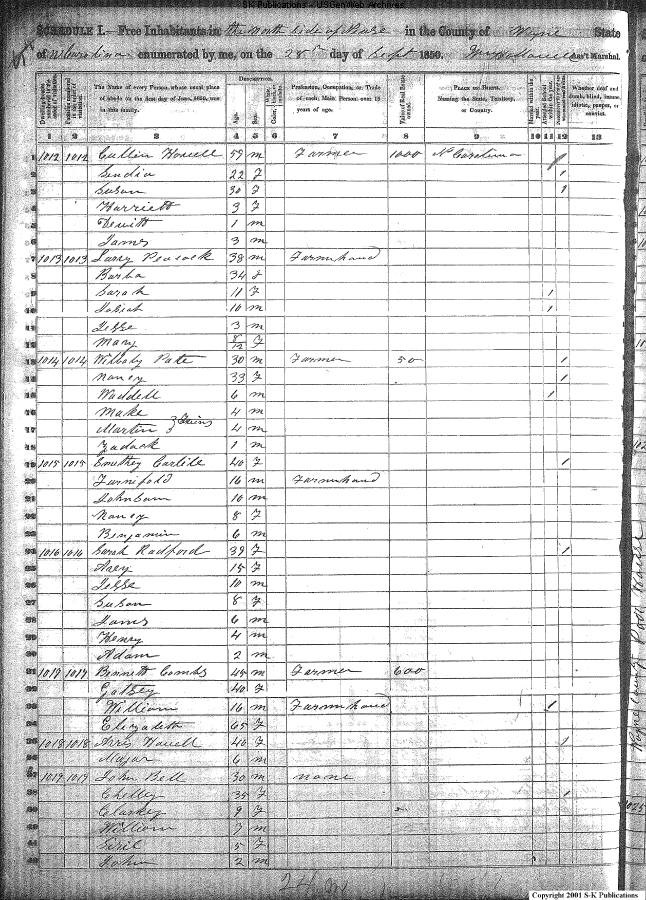 S-K Publications - USGenWeb Archives
SCHEDULE I.—Free Inhabitants in the North Side of Neuse in the County of Wayne State
of N Carolina enumerated by me, on the 28th day of Sept 1850. Ass't Marshal.
Dwelling-houses numbered in the order of visitation.
Families numbered in the order of visitation.
The Name of every Person whose usual place of abode on the first day of June, 1850, was in this family.
Description.
Age.
Sex.
Color,
Profession, Occupation, or Trade of each Male Person over 15 years of age.
Value of Real Estate owned.
Place of Birth. Naming the State, Territory, or Country.
Married within the year.
Attended School within the year.
Whether deaf and dumb, blind, insane, idiotic, pauper, or convict.
1 2 3 4 5 6 7 8 9 10 11 12 13
1 1012 1012 Cullen Howell 59 m Farmer 1000 N Carolina
2 22 F 1
3 Susan 30 F 1
4 Harriett 3 F
5 Dewitt 1 m
6 James 3 m
7 1013 1013 Larry Peacock 38 m Farmhand
8 34 F
9 Sarah 11 F 1
10 10 m 1
11 Jesse 3 m
12 Mary 8/12 F
13 1014 1014 Willoby Pate 30 m Farmer 50 1
14 Nancy 33 F 1
15 Waddell 6 m 1
16 Make 4 m
17 Martin } Twins 4 m
18 Zadock 1 m
19 1015 1015 Carlile 40 F 1
20 16 m Farmhand
21 10 m
22 Nancy 8 F
23 Benjamin 6 m
24 1016 1016 Sarah Radford 39 F 1
25 Avey 15 F
26 Jesse 10 m
27 Susan 8 F
28 James 6 m
29 Henry 4 m
30 Adam 2 m
31 1017 1017 Bennett Combs 45 m Farmer 600
32 Gatsey 40 F
33 William 16 m Farmhand 1
34 Elizabeth 65 F
35 1018 1018 Howell 40 F 1
36 Major 6 m
37 1019 1019 John Bell 30 m none
38 Chelley 35 F 1
39 Clarkey 9 F
40 William 7 m
41 5 F
42 John 2 m
24 m
Copyright 2001 S-K Publications